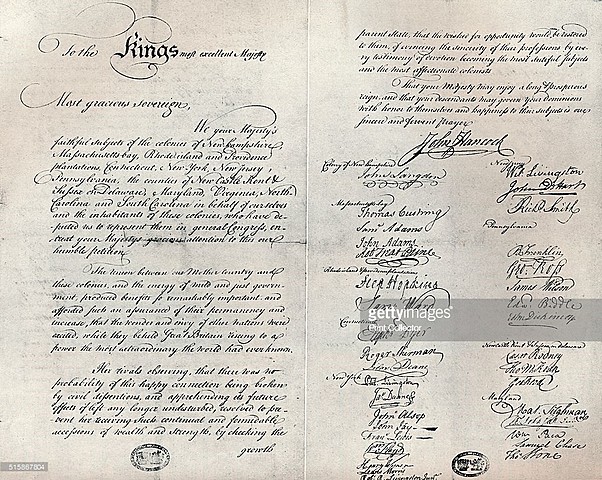 To the Kings most excellent Majesty
Most gracious Sovereign,
We your Majesty's
faithful subjects of the colonies of New hampshire
Massachusetts bay, Rhode island and Providence
plantations, Connecticut, New York, New Jersey
Pennsylvania, the counties of New Castle Kent &
Sussex on Delaware, Maryland, Virginia, North
Carolina and South Carolina in behalf of ourselves
and the inhabitants of these colonies, who have de-
puted us to represent them in general Congress, en-
treat your Majestys gracious attention to this our
humble petition.
The union between our Mother Country and
these colonies, and the energy of mild and just govern-
ment, produced benefits so remarkably important and
afforded such an assurance of their permanency and
increase, that the wonder and envy of other nations were
excited, while they beheld Great Britain rising to a
power the most extraordinary the world had ever known.
Her rivals observing, that there was no
probability of this happy connection being broken
by civil dissentions, and apprehending its future
effects if left any longer undisturbed, resolved to pre-
vent her receiving such continual and formidable
accessions of wealth and strength, by checking the
growth
parent State, that the wished for opportunity would be restored
to them, of evincing the sincerity of their professions by eve-
ry testimony of devotion becoming the most dutiful subjects
and the most affectionate colonists
That your Majesty may enjoy a long & prosperous
reign, and that your descendants may govern your dominions
with honor to themselves and happiness to their subjects is our
sincere and fervent prayer
John Hancock
Colony of New hampshire
John Langdon
Massachusetts bay
Thomas Cushing
Saml Adams
John Adams
Robt Treat Paine
Rhode island & providence plantations
Step Hopkins
Sam: Ward
Connecticut
Elipht Dyer
Roger Sherman
Silas Deane
New York
Phil Livingston
Jas Duane
John Alsop
John Jay
Frans Lewis
Wm Floyd
Lewis Morris
Robt R Livingston Junr
New Jersey
Wil Livingston
John Dehart
Richd Smith
Pennsylvania
B Franklin
Geo: Ross
James Wilson
Edwd Biddle
New Castle Kent & Sussex on Delaware
Caesar Rodney
Thos McKean
Geo Read
Maryland
Mat. Tilghman
Wm Paca
Samuel Chase
Thos Stone
gettyimages
Print Collector
515867804